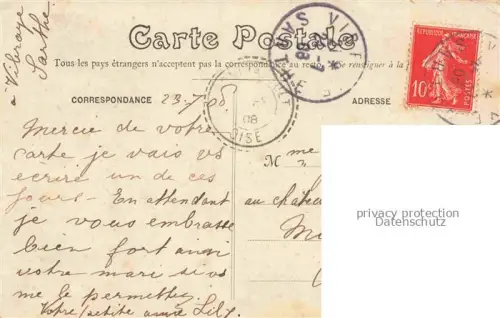 à Vibraye
Sarthe
Carte Postale
Tous les pays étrangers n'acceptent pas la correspondance au recto
CORRESPONDANCE
23-7-08
ADRESSE
VIBRAYE
SARTHE
OISE
08
RÉPUBLIQUE FRANÇAISE
10c
POSTES
Mercie de votre
carte je vais vs
écrire un de ces
jours - En attendant
je vous embrasse
bien fort ainsi
votre mari si vs
me le permettez
Votre petite amie Lily
Mme
au château
privacy protection
Datenschutz